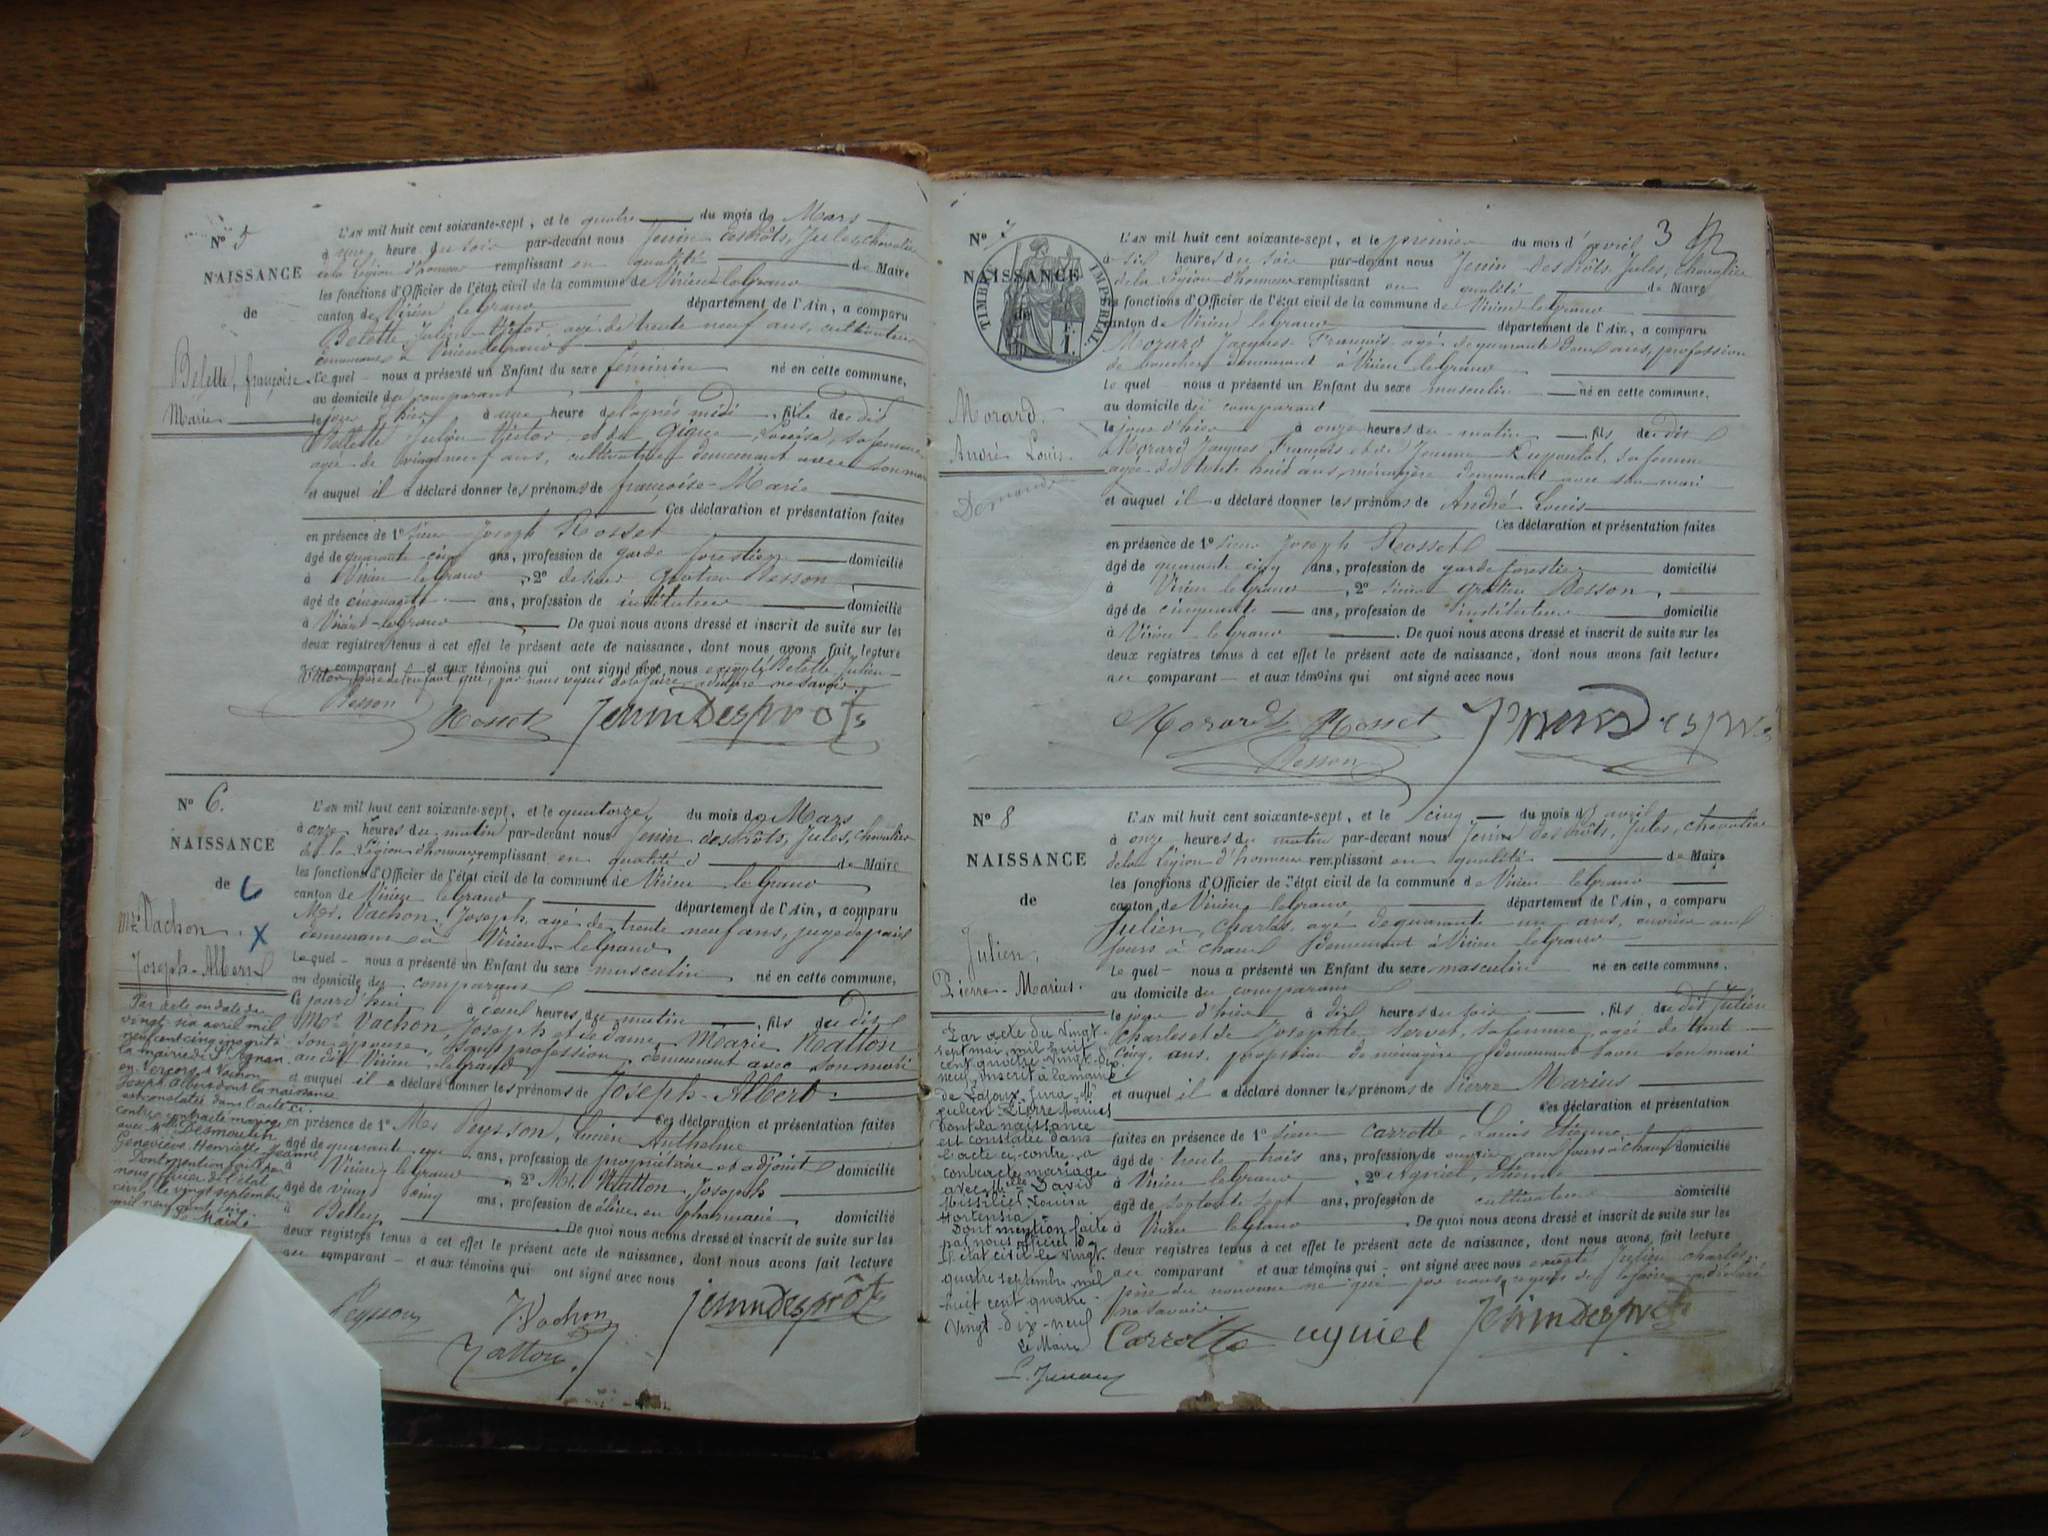 N° 5
NAISSANCE
de
Belette, françoise
Marie
L'AN mil huit cent soixante-sept, et le quatre du mois de Mars
à heure du soir par-devant nous Jenin desprôts, Jules, chevalier
de la Légion d'honneur remplissant en qualité de Maire
les fonctions d'Officier de l'état civil de la commune de Virieu le Grand
canton de Virieu le Grand département de l'Ain, a comparu
Belette Julien Victor, agé de trente neuf ans, cultivateur
demeurant à Virieu le Grand
Le quel nous a présenté un Enfant du sexe féminin né en cette commune,
au domicile du comparant
le jour d'hier, à une heure de l'après midi, fille du dit
Belette Julien Victor et de Gigue Louise, sa femme
agée de vingt neuf ans, cultivatrice demeurant avec son mari
et auquel il a déclaré donner les prénoms de françoise-Marie
Ces déclaration et présentation faites
en présence de 1° sieur Joseph Rosset
âgé de quarante cinq ans, profession de garde forestier domicilié
à Virieu le Grand, 2° de sieur Gratien Besson
âgé de cinquante ans, profession de instituteur domicilié
à Virieu-le Grand De quoi nous avons dressé et inscrit de suite sur les
deux registres tenus à cet effet le présent acte de naissance, dont nous avons fait lecture
au comparant et aux témoins qui ont signé avec nous excepté Belette Julien
Victor, père de l'enfant qui, par nous requis de le faire a déclaré ne savoir
Besson Rosset Jenin Desprôts
N° 6.
NAISSANCE
de 6
Me Vachon X
Joseph-Albert
Par acte en date du
vingt six avril mil
neuf cent cinq inscrit à
la mairie de St Agnan
en Vercors, Vachon
Joseph Albert dont la naissance
est constatée dans l'acte ci-
contre a contracté mariage
avec Mlle Desmoulin
Geneviève Henriette Jeanne
Dont mention faite par
nous officier de l'état
civil le vingt septembre
mil neuf cent cinq.
Le Maire
L'AN mil huit cent soixante-sept, et le quatorze du mois de Mars
à onze heures du matin par-devant nous Jenin desprôts, Jules, chevalier
de la Légion d'honneur remplissant en qualité de Maire
les fonctions d'Officier de l'état civil de la commune de Virieu le Grand
canton de Virieu le Grand département de l'Ain, a comparu
Mr. Vachon, Joseph, agé de trente neuf ans, juge de paix
demeurant à Virieu-le Grand
Le quel nous a présenté un Enfant du sexe masculin né en cette commune,
au domicile du comparant
le jour d'hui à heures du matin, fils du dit
Mr Vachon, Joseph et de dame Marie Natton
son épouse, sans profession, demeurant avec son mari
au dit Virieu le Grand
et auquel il a déclaré donner les prénoms de Joseph-Albert
Ces déclaration et présentation faites
en présence de 1° Mr Peysson, Lucien Anthelme
âgé de quarante ans, profession de propriétaire et adjoint domicilié
à Virieu le Grand, 2° Mr. Natton Joseph
âgé de vingt cinq ans, profession de élève en pharmacie domicilié
à Belley De quoi nous avons dressé et inscrit de suite sur les
deux registres tenus à cet effet le présent acte de naissance, dont nous avons fait lecture
au comparant et aux témoins qui ont signé avec nous
Peysson Vachon Jenin Desprôts
Natton
3
N° 7
NAISSANCE
de
TIMBRE IMPERIAL
Morard
André Louis
L'AN mil huit cent soixante-sept, et le premier du mois d'avril
à six heures du soir par-devant nous Jenin desprôts, Jules, chevalier
de la Légion d'honneur remplissant en qualité de Maire
les fonctions d'Officier de l'état civil de la commune de Virieu le Grand
canton de Virieu le Grand département de l'Ain, a comparu
Morard Jacques François agé de quarante deux ans, profession
de boucher demeurant à Virieu le Grand
Le quel nous a présenté un Enfant du sexe masculin né en cette commune,
au domicile du comparant
le jour d'hier à onze heures du matin, fils du dit
Morard Jacques François et de Jeanne sa femme
agée de trente huit ans, ménagère demeurant avec son mari
et auquel il a déclaré donner les prénoms de André Louis
Ces déclaration et présentation faites
en présence de 1° sieur Joseph Rosset
âgé de quarante cinq ans, profession de garde forestier domicilié
à Virieu le Grand, 2° sieur Gratien Besson
âgé de cinquante ans, profession de instituteur domicilié
à Virieu le Grand. De quoi nous avons dressé et inscrit de suite sur les
deux registres tenus à cet effet le présent acte de naissance, dont nous avons fait lecture
au comparant et aux témoins qui ont signé avec nous
Morard Rosset Jenin Desprôts
Besson
N° 8
NAISSANCE
de
Julien,
Pierre-Marius.
Par acte du vingt
sept mai mil huit
cent quatre-vingt-dix-
neuf, inscrit à la mairie
de Lajoux, Jura, Mr
Julien Pierre Marius
dont la naissance
est constatée dans
l'acte ci-contre a
contracté mariage
avec Mlle David
Louisa
Hortensia
Dont mention faite
par nous officier de
l'état civil le vingt-
quatre septembre mil
huit cent quatre-
vingt-dix-neuf
Le Maire
L'AN mil huit cent soixante-sept, et le cinq du mois d'avril
à onze heures du matin par-devant nous Jenin desprôts, Jules, chevalier
de la Légion d'honneur remplissant en qualité de Maire
les fonctions d'Officier de l'état civil de la commune de Virieu le Grand
canton de Virieu le Grand département de l'Ain, a comparu
Julien, Charles, agé de quarante un ans, ouvrier aux
fours à chaux demeurant à Virieu le Grand
Le quel nous a présenté un Enfant du sexe masculin né en cette commune,
au domicile du comparant
le jour d'hier à dix heures du soir, fils du dit Julien
Charles et de Josephte Servet, sa femme, agée de trente
cinq ans, profession de ménagère demeurant avec son mari
et auquel il a déclaré donner les prénoms de Pierre Marius
Ces déclaration et présentation
faites en présence de 1° sieur Carrotte, Louis Etienne
âgé de trente trois ans, profession de ouvrier aux fours à chaux domicilié
à Virieu le Grand, 2° Aguiel, Etienne
âgé de septante sept ans, profession de cultivateur domicilié
à Virieu le Grand. De quoi nous avons dressé et inscrit de suite sur les
deux registres tenus à cet effet le présent acte de naissance, dont nous avons fait lecture
au comparant et aux témoins qui ont signé avec nous excepté Julien Charles,
père du nouveau né qui par nous requis de le faire a déclaré
ne savoir.
Carrotte Aguiel Jenin Desprôts